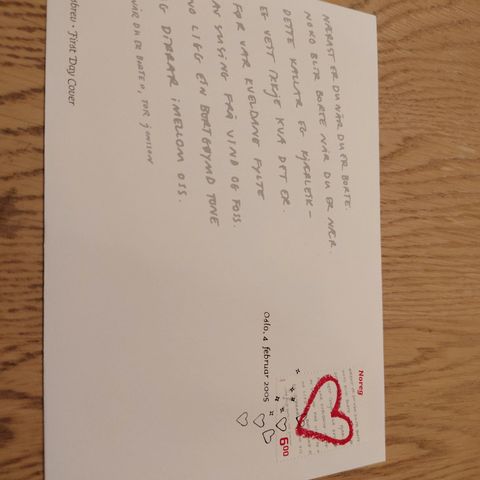 NÆRAST ER DU NÅR DU ER BORTE.
NOKO BLIR BORTE NÅR DU ER NÆR.
DETTE KALLAR EG KJÆRLEIK –
EG VEIT IKKJE KVA DET ER.
FØR VAR KVELDANE FYLTE
AV SUSING FRÅ VIND OG FOSS.
NO LIGG EIN BORTGØYMD TONE
G DIRRAR IMELLOM OSS.
NÅR DU ER BORTE", TOR JONSSON
First Day Cover
Oslo, 4 februar 2005
Noreg
6 00